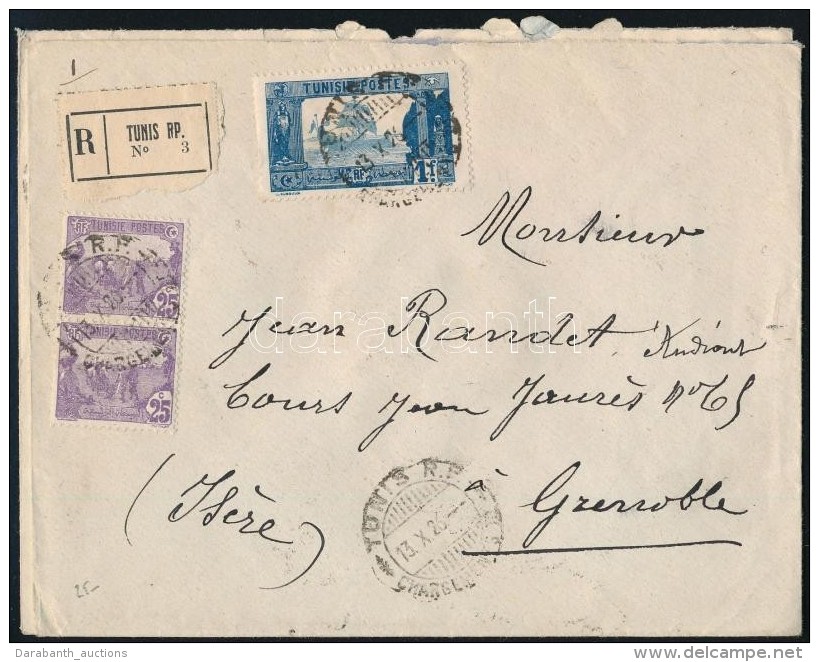 1
R
TUNIS RP.
Nº 3
TUNISIE POSTES
RF
1F
RF TUNISIE POSTES
25
c
25
TUNIS R.P.
13.X.25
CHARGEM
Monsieur
Jean Randet
Cours Jean Jaurès Nº 65
à Grenoble
(Isère)
TUNIS R.P.
13.X.25
CHARGEM
25-
darabanth
Darabanth_auctions
www.delcampe.net